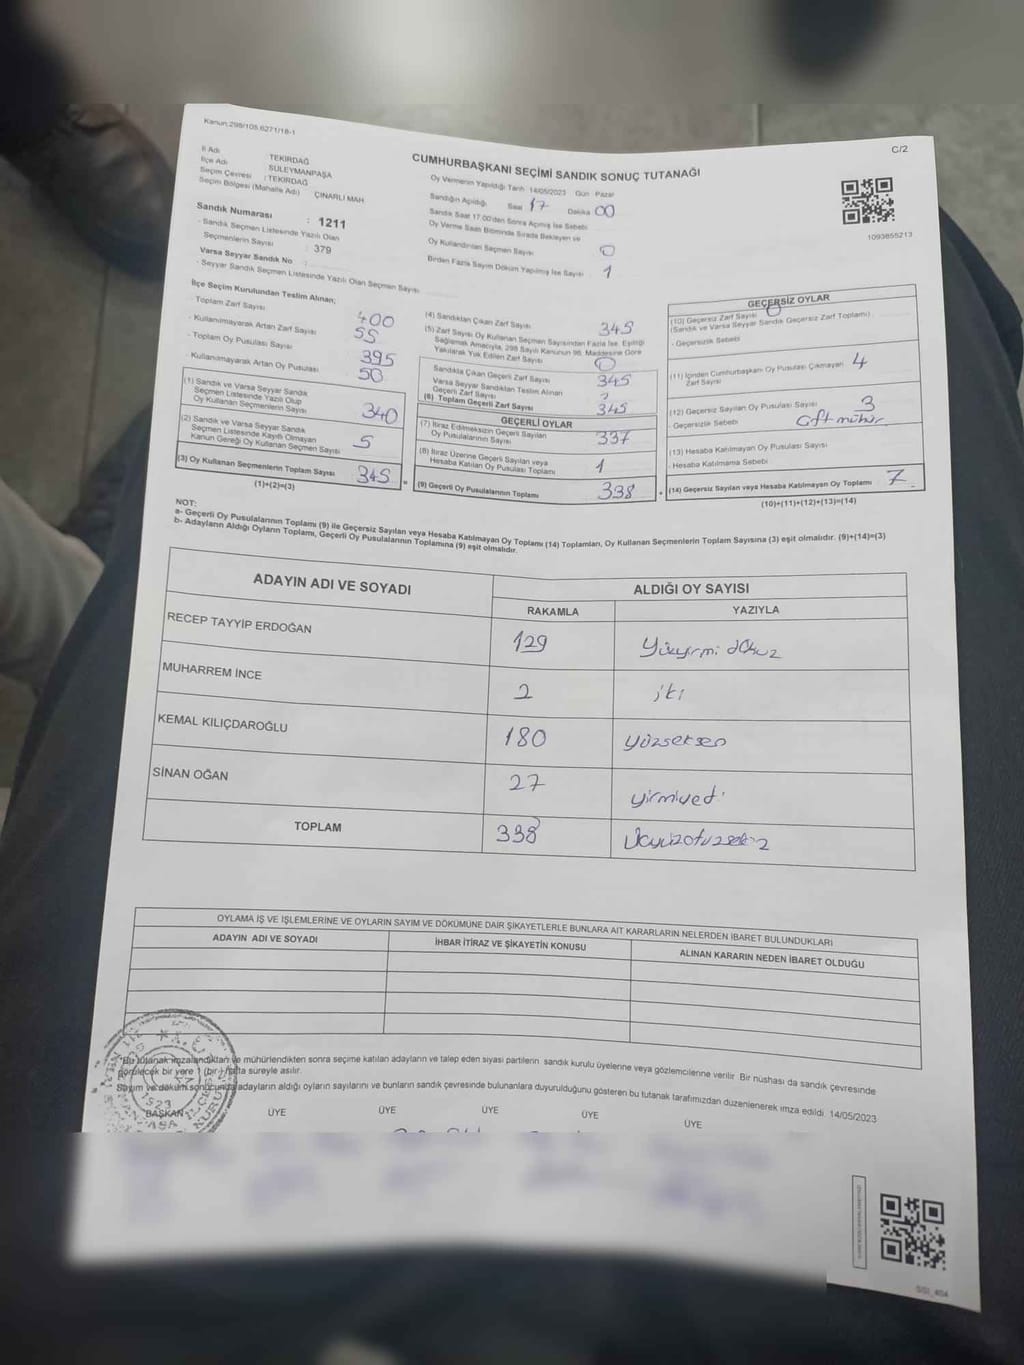 Kanun:298/105,6271/18-1
C/2
İl Adı TEKİRDAĞ
İlçe Adı SÜLEYMANPAŞA
Seçim Çevresi : TEKİRDAĞ
Seçim Bölgesi (Mahalle Adı) ÇINARLI MAH
Sandık Numarası : 1211
- Sandık Seçmen Listesinde Yazılı Olan
Seçmenlerin Sayısı : 379
Varsa Seyyar Sandık No :
- Seyyar Sandık Seçmen Listesinde Yazılı Olan Seçmen Sayısı
CUMHURBAŞKANI SEÇİMİ SANDIK SONUÇ TUTANAĞI
Oy Vermenin Yapıldığı Tarih 14/05/2023 Gün Pazar
Sandığın Açıldığı Saat 17 Dakika 00
Sandık Saat 17.00'den Sonra Açılmış İse Sebebi
Oy Verme Saati Bitiminde Sırada Bekleyen ve
Oy Kullandırılan Seçmen Sayısı 0
Birden Fazla Sayım Döküm Yapılmış İse Sayısı 1
1093855213
İlçe Seçim Kurulundan Teslim Alınan;
- Toplam Zarf Sayısı 400
- Kullanılmayarak Artan Zarf Sayısı 55
- Toplam Oy Pusulası Sayısı 395
- Kullanılmayarak Artan Oy Pusulası 50
(1) Sandık ve Varsa Seyyar Sandık
Seçmen Listesinde Yazılı Olup
Oy Kullanan Seçmenlerin Sayısı 340
(2) Sandık ve Varsa Seyyar Sandık
Seçmen Listesinde Kayıtlı Olmayan
Kanun Gereği Oy Kullanan Seçmen Sayısı 5
(3) Oy Kullanan Seçmenlerin Toplam Sayısı 345
(1)+(2)=(3)
(4) Sandıktan Çıkan Zarf Sayısı 345
(5) Zarf Sayısı Oy Kullanan Seçmen Sayısından Fazla İse, Eşitliği
Sağlamak Amacıyla, 298 Sayılı Kanunun 98. Maddesine Göre
Yakılarak Yok Edilen Zarf Sayısı 0
Sandıkta Çıkan Geçerli Zarf Sayısı 345
Varsa Seyyar Sandıktan Teslim Alınan
Geçerli Zarf Sayısı
(6) Toplam Geçerli Zarf Sayısı 345
GEÇERLİ OYLAR
(7) İtiraz Edilmeksizin Geçerli Sayılan
Oy Pusulalarının Sayısı 337
(8) İtiraz Üzerine Geçerli Sayılan veya
Hesaba Katılan Oy Pusulası Toplamı 1
(9) Geçerli Oy Pusulalarının Toplamı 338
GEÇERSİZ OYLAR
(10) Geçersiz Zarf Sayısı 0
(Sandık ve Varsa Seyyar Sandık Geçersiz Zarf Toplamı)
- Geçersizlik Sebebi
(11) İçinden Cumhurbaşkanı Oy Pusulası Çıkmayan
Zarf Sayısı 4
(12) Geçersiz Sayılan Oy Pusulası Sayısı 3
- Geçersizlik Sebebi Çift mühür
(13) Hesaba Katılmayan Oy Pusulası Sayısı
- Hesaba Katılmama Sebebi
(14) Geçersiz Sayılan veya Hesaba Katılmayan Oy Toplamı 7
(10)+(11)+(12)+(13)=(14)
NOT:
a- Geçerli Oy Pusulalarının Toplamı (9) ile Geçersiz Sayılan veya Hesaba Katılmayan Oy Toplamı (14) Toplamları, Oy Kullanan Seçmenlerin Toplam Sayısına (3) eşit olmalıdır. (9)+(14)=(3)
b- Adayların Aldığı Oyların Toplamı, Geçerli Oy Pusulalarının Toplamına (9) eşit olmalıdır.
ADAYIN ADI VE SOYADI ALDIĞI OY SAYISI
RAKAMLA YAZIYLA
RECEP TAYYİP ERDOĞAN 129 Yüzyirmi dokuz
MUHARREM İNCE 2 iki
KEMAL KILIÇDAROĞLU 180 Yüzseksen
SİNAN OĞAN 27 yirmiyedi
TOPLAM 338 Üçyüzotuzsekiz
OYLAMA İŞ VE İŞLEMLERİNE VE OYLARIN SAYIM VE DÖKÜMÜNE DAİR ŞİKAYETLERLE BUNLARA AİT KARARLARIN NELERDEN İBARET BULUNDUKLARI
ADAYIN ADI VE SOYADI İHBAR İTİRAZ VE ŞİKAYETİN KONUSU ALINAN KARARIN NEDEN İBARET OLDUĞU
Bu tutanak imzalandıktan ve mühürlendikten sonra seçime katılan adayların ve talep eden siyasi partilerin sandık kurulu üyelerine veya gözlemcilerine verilir. Bir nüshası da sandık çevresinde
görülecek bir yere 1 (bir) hafta süreyle asılır.
Sayım ve döküm sonucunda adayların aldığı oyların sayılarını ve bunların sandık çevresinde bulunanlara duyurulduğunu gösteren bu tutanak tarafımızdan düzenlenerek imza edildi 14/05/2023
BAŞKAN ÜYE ÜYE ÜYE ÜYE ÜYE